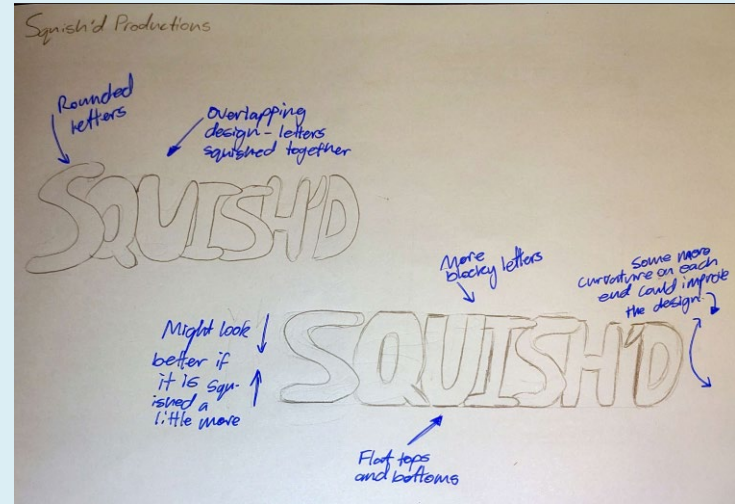 Squish'd Productions
Rounded
Letters
Overlapping
design - letters
squished together
SQUISH'D
More
blocky letters
Some more
curvature on each
end could improve
the design.
SQUISH'D
Might look
better if
it is squ-
ished a
little more
Flat tops
and bottoms